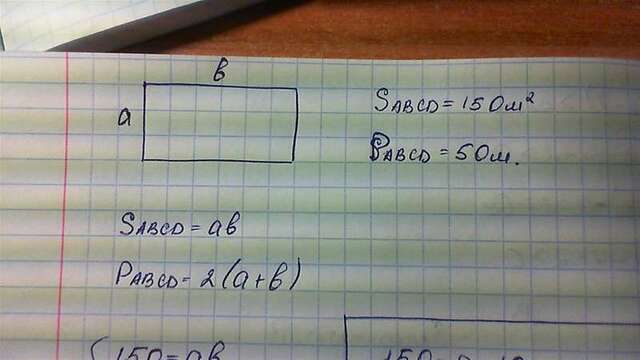 в
a
SABCD = 150м²
PABCD = 50м.
SABCD = aв
PABCD = 2(a+в)
150 = aв